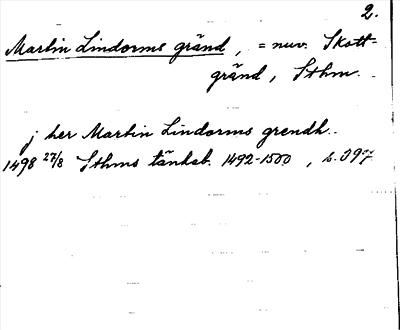 2.
Martin Lindorms gränd, = nuv. Skott-
gränd, Sthm.
j her Martin Lindorms grendh..
1498 27/8 Sthms tänkeb. 1492-1500, s. 397